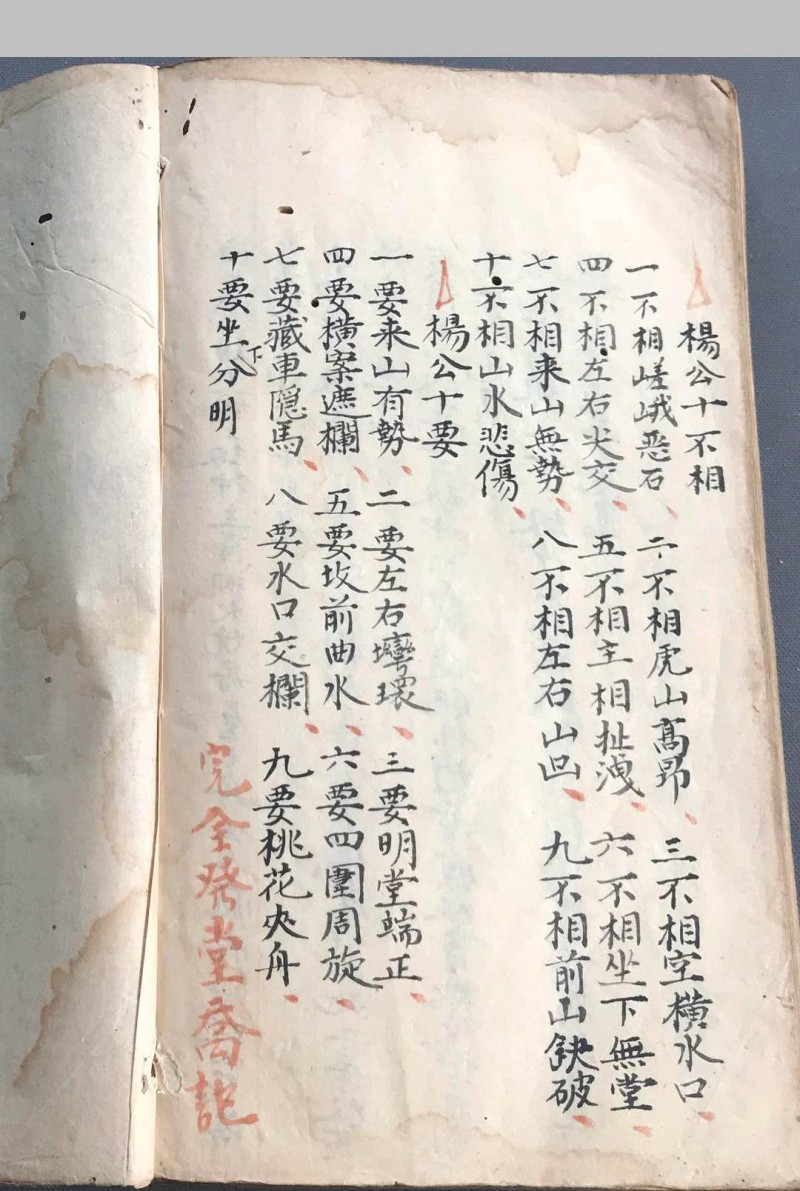 楊公十不相
一不相嵯峨恶石 二不相虎山髙昂 三不相空横水口
四不相左右尖交 五不相主相扯洩 六不相坐下無堂
七不相来山無勢 八不相左右山凹 九不相前山缺破
十不相山水悲傷
楊公十要
一要来山有勢 二要左右彎環 三要明堂端正
四要横案遮欄 五要坟前曲水 六要四圍周旋
七要藏車隐馬 八要水口交欄 九要桃花夾舟
十要坐下分明
完全發堂喬記